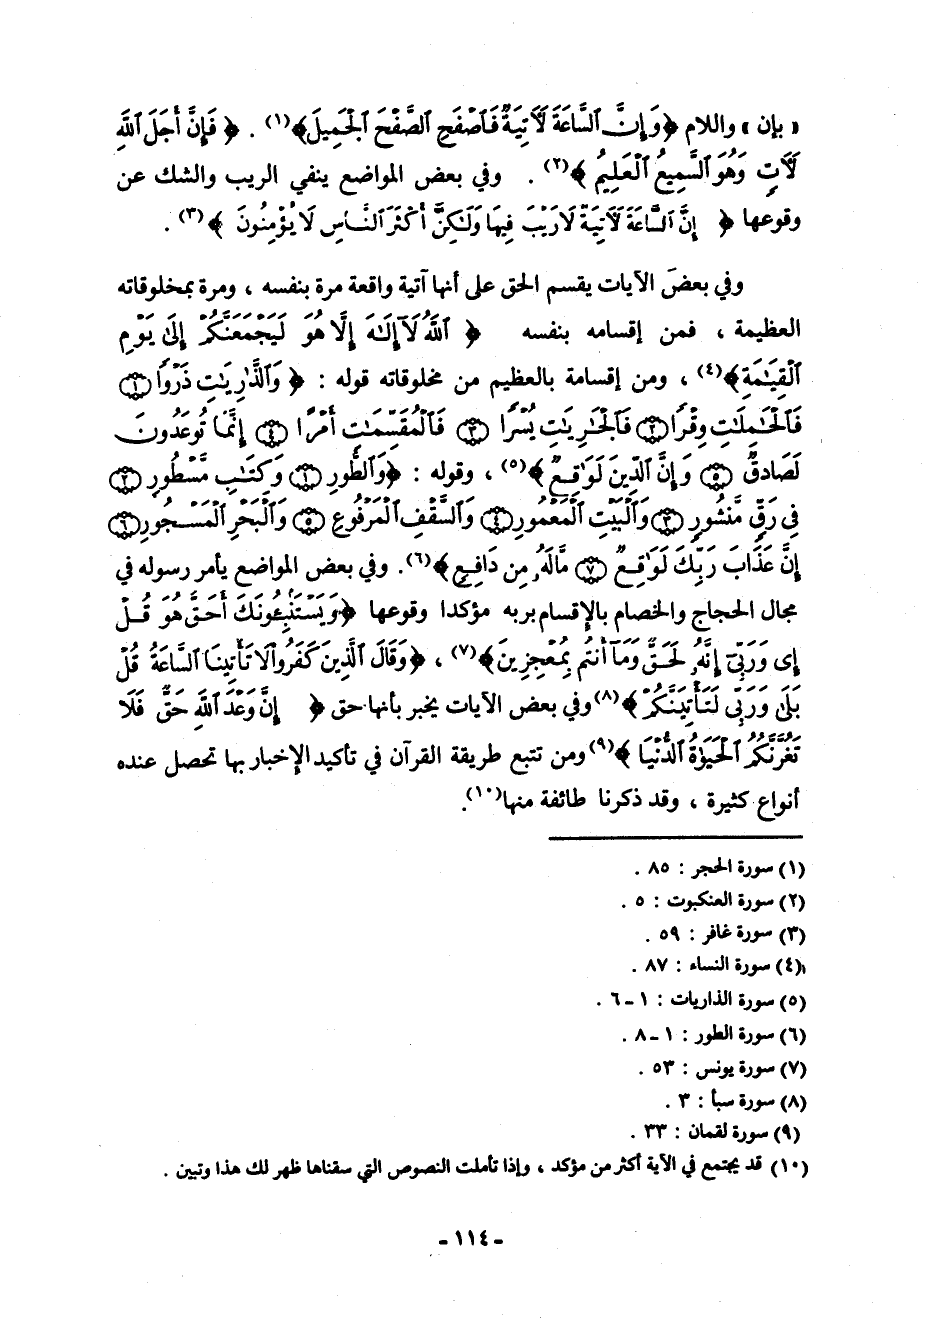 « بإن » واللام ﴿وَإِنَّ ٱلسَّاعَةَ لَآتِيَةٌ فَٱصْفَحِ ٱلصَّفْحَ ٱلْجَمِيلَ﴾(١) . ﴿ فَإِنَّ أَجَلَ ٱللَّهِ
لَآتٍ وَهُوَ ٱلسَّمِيعُ ٱلْعَلِيمُ ﴾(٢) . وفي بعض المواضع ينفي الريب والشك عن
وقوعها ﴿ إِنَّ ٱلسَّاعَةَ لَآتِيَةٌ لَا رَيْبَ فِيهَا وَلَٰكِنَّ أَكْثَرَ ٱلنَّاسِ لَا يُؤْمِنُونَ ﴾(٣) .
وفي بعض الآيات يقسم الحق على أنها آتية واقعة مرة بنفسه ، ومرة بمخلوقاته
العظيمة ، فمن إقسامه بنفسه ﴿ ٱللَّهُ لَآ إِلَٰهَ إِلَّا هُوَ لَيَجْمَعَنَّكُمْ إِلَىٰ يَوْمِ
ٱلْقِيَٰمَةِ﴾(٤) ، ومن إقسامة بالعظيم من مخلوقاته قوله : ﴿ وَٱلذَّٰرِيَٰتِ ذَرْوًا ۝١
فَٱلْحَٰمِلَٰتِ وِقْرًا ۝٢ فَٱلْجَٰرِيَٰتِ يُسْرًا ۝٣ فَٱلْمُقَسِّمَٰتِ أَمْرًا ۝٤ إِنَّمَا تُوعَدُونَ
لَصَادِقٌ ۝٥ وَإِنَّ ٱلدِّينَ لَوَٰقِعٌ ﴾(٥) ، وقوله : ﴿وَٱلطُّورِ ۝١ وَكِتَٰبٍ مَّسْطُورٍ ۝٢
فِي رَقٍّ مَّنشُورٍ ۝٣ وَٱلْبَيْتِ ٱلْمَعْمُورِ ۝٤ وَٱلسَّقْفِ ٱلْمَرْفُوعِ ۝٥ وَٱلْبَحْرِ ٱلْمَسْجُورِ ۝٦
إِنَّ عَذَابَ رَبِّكَ لَوَٰقِعٌ ۝٧ مَّا لَهُۥ مِن دَافِعٍ ﴾(٦). وفي بعض المواضع يأمر رسوله في
مجال الحجاج والخصام بالإقسام بربه مؤكدا وقوعها ﴿وَيَسْتَنۢبِـُٔونَكَ أَحَقٌّ هُوَ قُلْ
إِى وَرَبِّىٓ إِنَّهُۥ لَحَقٌّ وَمَآ أَنتُم بِمُعْجِزِينَ﴾(٧) ، ﴿وَقَالَ ٱلَّذِينَ كَفَرُوا۟ لَا تَأْتِينَا ٱلسَّاعَةُ قُلْ
بَلَىٰ وَرَبِّى لَتَأْتِيَنَّكُمْ ﴾(٨) وفي بعض الآيات يخبر بأنها حق ﴿ إِنَّ وَعْدَ ٱللَّهِ حَقٌّ فَلَا
تَغُرَّنَّكُمُ ٱلْحَيَوٰةُ ٱلدُّنْيَا ﴾(٩) ومن تتبع طريقة القرآن في تأكيد الإخبار بها تحصل عنده
أنواع كثيرة ، وقد ذكرنا طائفة منها(١٠).
(١) سورة الحجر : ٨٥ .
(٢) سورة العنكبوت : ٥ .
(٣) سورة غافر : ٥٩ .
(٤) سورة النساء : ٨٧ .
(٥) سورة الذاريات : ١ ــ ٦ .
(٦) سورة الطور : ١ ــ ٨ .
(٧) سورة يونس : ٥٣ .
(٨) سورة سبأ : ٣ .
(٩) سورة لقمان : ٣٣ .
(١٠) قد يجتمع في الآية أكثر من مؤكد ، وإذا تأملت النصوص التي سقناها ظهر لك هذا وتبين .
- ١١٤ -